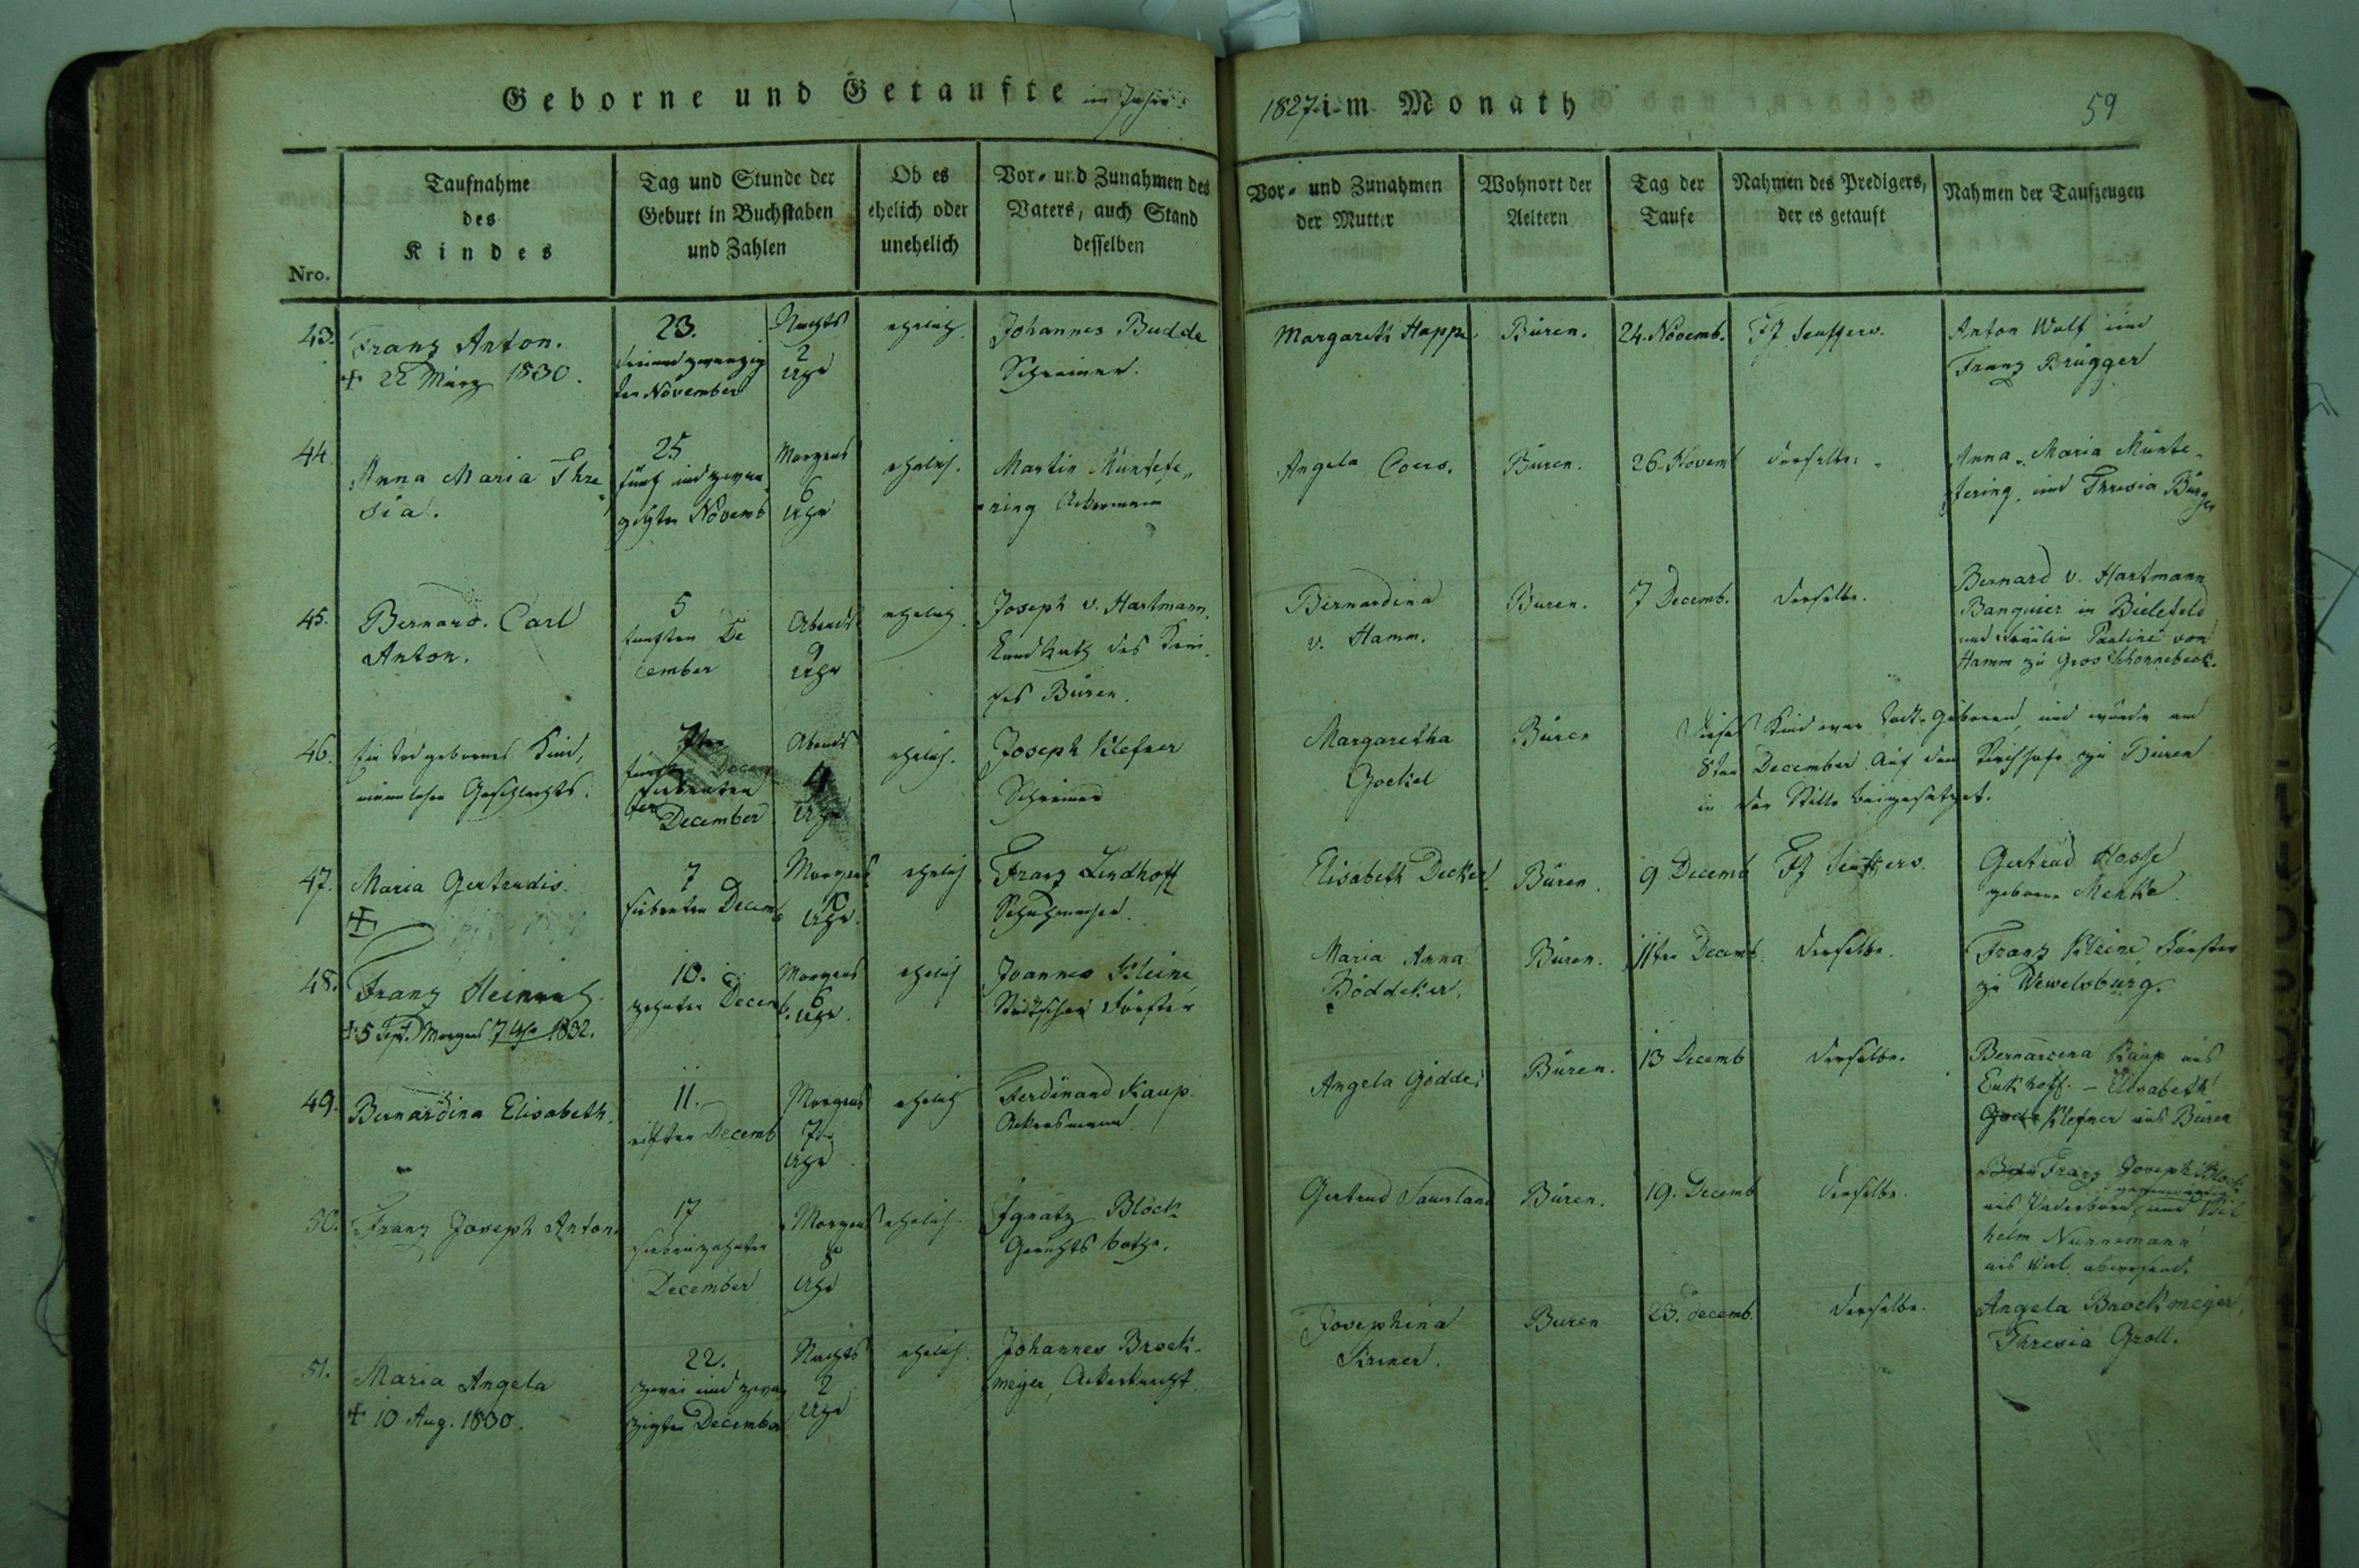 Geborne und Getaufte im Jahre
1827 im Monath
59
Nro.
Taufnahme
des
Kindes
Tag und Stunde der
Geburt in Buchstaben
und Zahlen
Ob es
ehelich oder
unehelich
Vor- und Zunahmen des
Vaters, auch Stand
desselben
Vor- und Zunahmen
der Mutter
Wohnort der
Aeltern
Tag der
Taufe
Nahmen des Predigers,
der es getauft
Nahmen der Taufzeugen
43.
Franz Anton.
+ 22 März 1830.
23.
dreiundzwanzig
ster November
Nachts
2
Uhr
ehelich.
Johannes Budde
Schreiner.
Margareth Happe
Büren.
24. Novemb.
Anton Wulf und
Franz Brügger
44
Anna Maria Thre
sia.
25
fünf und zwan
zigster Novemb
Morgens
6
Uhr
ehelich.
Martin Müntefe
ring Ackermann
Angela Coers.
Büren.
26. Novemb
derselbe.
Anna Maria Münte-
fering, und Thresia Bürger
45.
Bernard. Carl
Anton.
5
fünften De
cember
Abends
9
Uhr
ehelich.
Joseph v. Hartmann,
Landrath des Krei
ses Büren.
Bernardina
v. Hamm.
Büren.
7 Decemb.
derselbe.
Bernard v. Hartmann
Banquier in Bielefeld
und Fräulein Pauline von
Hamm zu Gros Schonnebeck.
46.
Ein tod gebornes Kind,
männlichen Geschlechts.
siebenten
December
Abends
4
Uhr
ehelich.
Joseph Klefner
Schreiner
Margaretha
Goekel
Büren
Dieses Kind war todt geboren, und wurde am
8ten December auf dem Kirchhofe zu Büren
in der Stille beigesetzet.
47.
Maria Gertrudis.
+
7
siebenten Decemb
Morgens
10
Uhr.
ehelich
Franz Lindhoff
Schuhmacher.
Elisabeth Decker
Büren.
9 Decemb
Gertrud Hesse
geborne Menke.
48.
Franz Heinrich.
+ 5 Sept. Morgens 7 Uhr 1832.
10.
zehnter Decemb.
Morgens
6
Uhr.
ehelich
Joannes Kleine
Städtscher Förster
Maria Anna
Böddeker.
Büren.
11ter Decemb.
derselbe.
Franz Kleine, Förster
zu Wewelsburg.
49.
Bernardina Elisabeth.
11.
eilfter Decemb
Morgens
7
Uhr
ehelich
Ferdinand Kaup.
Ackersmann
Angela Gödde
Büren.
13 Decemb
derselbe.
Bernardina Kaup aus
Eickhoff. - Elisabeth
Klefner aus Büren
50.
Franz Joseph Anton.
17
siebenzehnter
December
Morgens
8
Uhr
ehelich.
Ignatz Block
Gerichts bothe.
Gertrud Sauerland
Büren.
19. Decemb
derselbe.
Franz Joseph Block
aus Paderborn und Wil
helm Nunnemann
aus Verl abwesend.
51.
Maria Angela
+ 10 Aug. 1830.
22.
zwei und zwan
zigster December
Nachts
2
Uhr
ehelich.
Johannes Brock-
meyer, Ackerknecht
Josephina
Kriner.
Büren
23. decemb.
derselbe.
Angela Brockmeyer,
Thresia Groll.